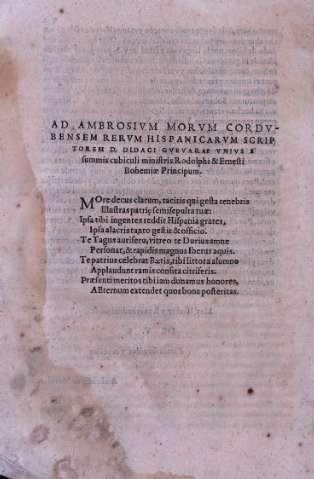 AD AMBROSIVM MORVM CORDV-
BENSEM RERVM HISPANICARVM SCRIP
TOREM D. DIDACI GVEVARAE VNIVS È
summis cubiculi ministris Rodolphi & Ernesti
Bohemiæ Principum.
More decus clarum, tacitis qui gesta tenebris
Illustras patriæ semisepulta tuæ:
Ipsa tibi ingentes reddit Hispania grates,
Ipsa alacris tanto gestit & officio.
Te Tagus aurifero, vitreo te Durius amne
Personat, & rapidis magnus Iberus aquis.
Te patrius celebrat Bætis, tibi littora alumno
Applaudunt ramis consita citriferis.
Præsenti meritos tibi iam donamus honores,
Aeternum extendet quos bona posteritas.